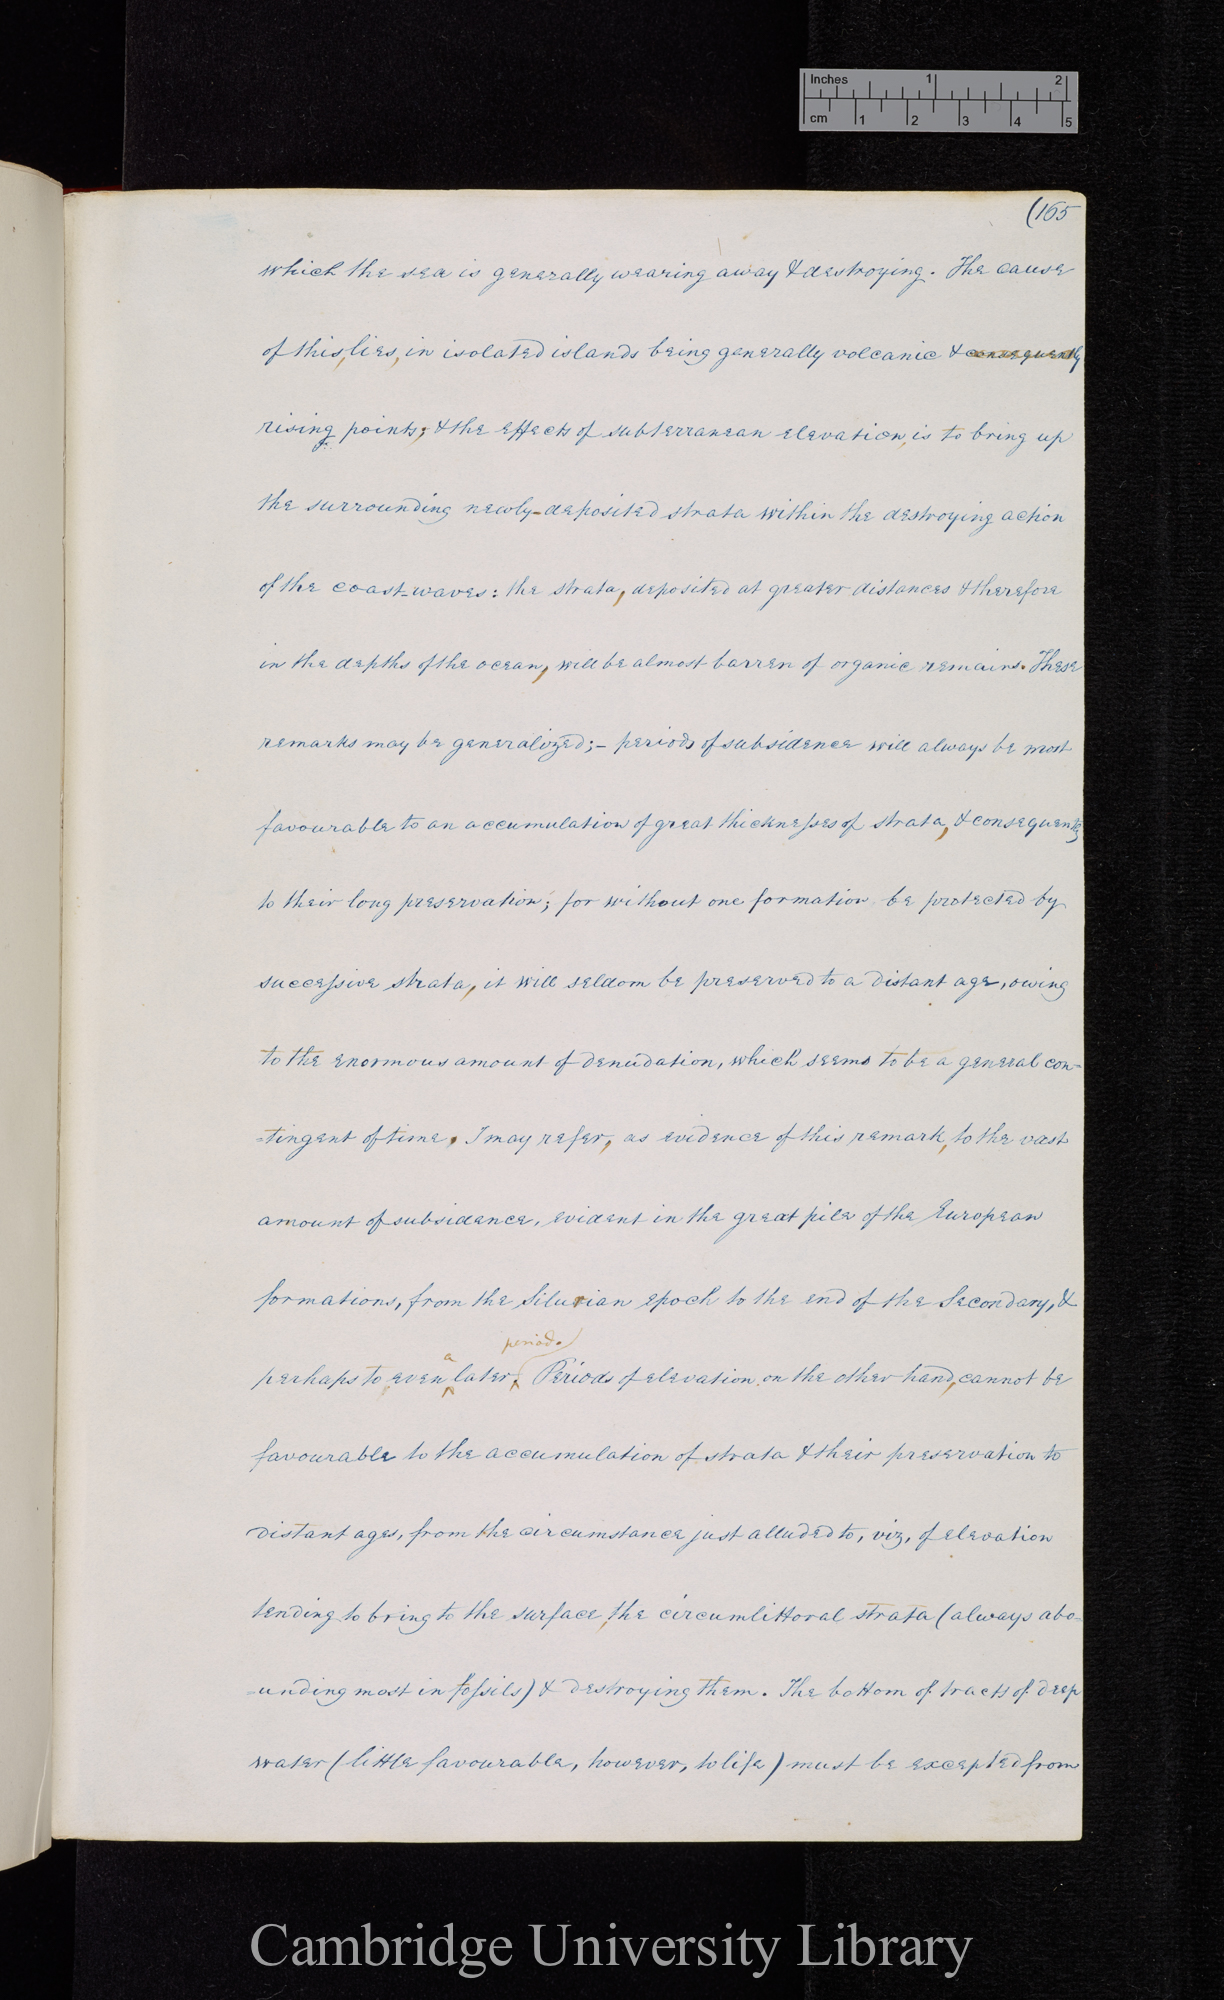 Inches 1 2
cm 1 2 3 4 5
(165
which the sea is generally wearing away & destroying. The cause
of this, lies, in isolated islands being generally volcanic & consequently
rising points; & the effects of subterranean elevation, is to bring up
the surrounding newly-deposited strata within the destroying action
of the coast-waves: the strata, deposited at greater distances & therefore
in the depths of the ocean, will be almost barren of organic remains. These
remarks may be generalized;– periods of subsidence will always be most
favourable to an accumulation of great thicknesses of strata, & consequently
to their long preservation; for without one formation be protected by
successive strata, it will seldom be preserved to a distant age, owing
to the enormous amount of denudation, which seems to be a general con-
-tingent of time. I may refer, as evidence of this remark, to the vast
amount of subsidence, evident in the great pile of the European
formations, from the Silurian epoch to the end of the Secondary, &
perhaps to even a later period. Periods of elevation on the other hand, cannot be
favourable to the accumulation of strata & their preservation to
distant ages, from the circumstance just alluded to, viz, of elevation
tending to bring to the surface, the circumlittoral strata (always abo-
-unding most in fossils) & destroying them. The bottom of tracts of deep
water (little favourable, however, to life) must be excepted from
Cambridge University Library